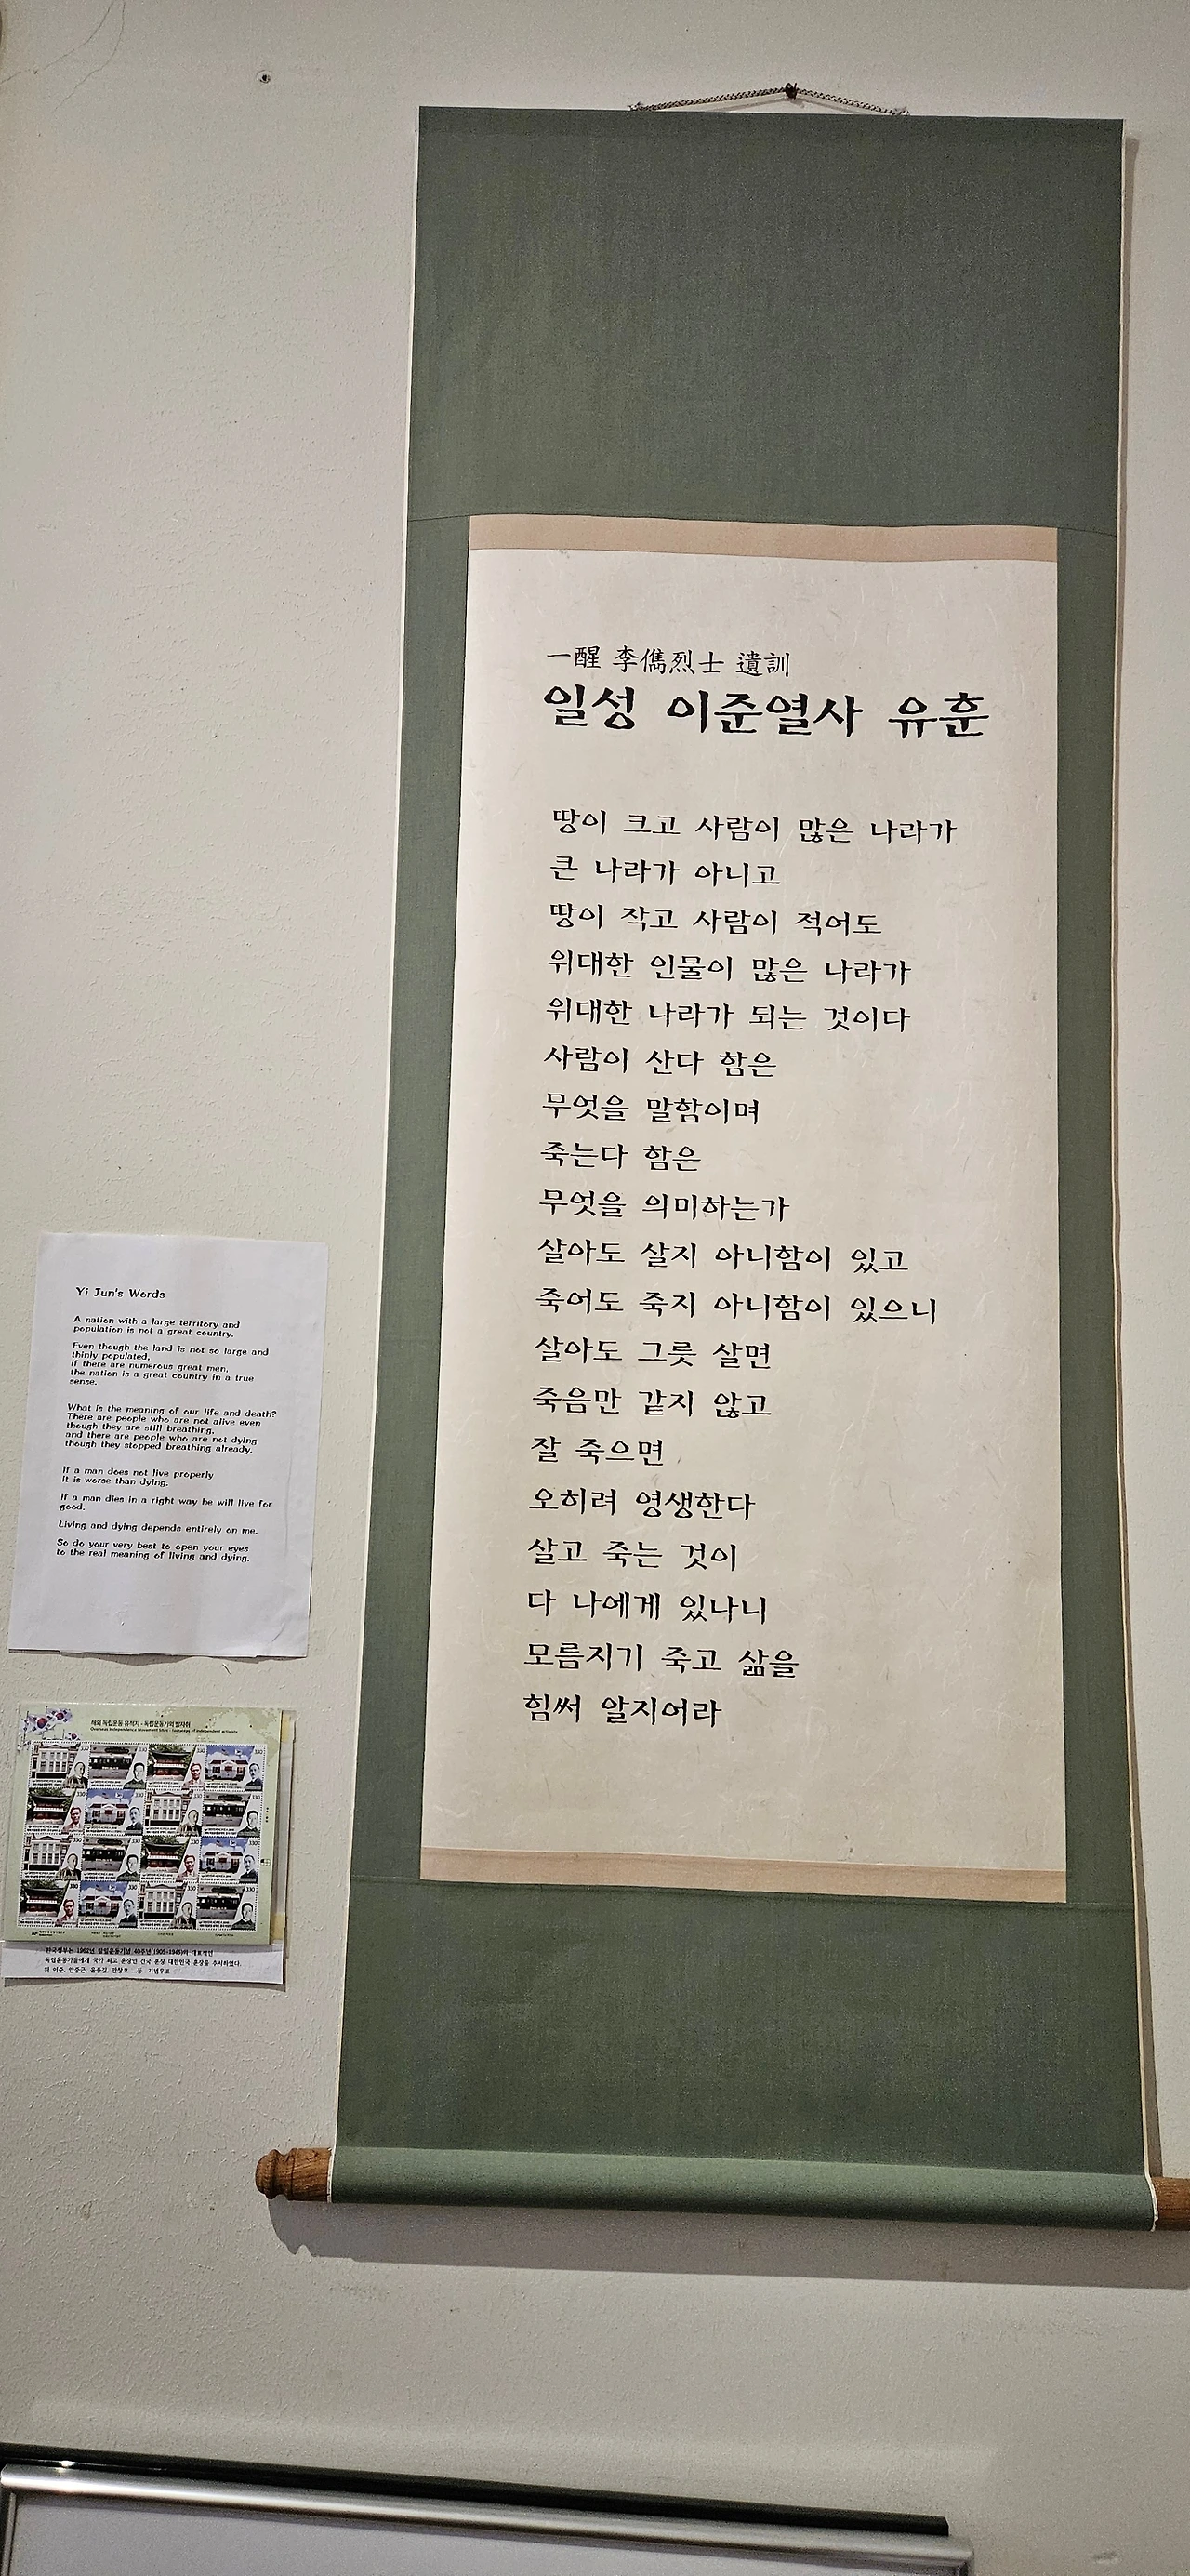 一醒 李儁烈士 遺訓
일성 이준열사 유훈
땅이 크고 사람이 많은 나라가
큰 나라가 아니고
땅이 작고 사람이 적어도
위대한 인물이 많은 나라가
위대한 나라가 되는 것이다
사람이 산다 함은
무엇을 말함이며
죽는다 함은
무엇을 의미하는가
살아도 살지 아니함이 있고
죽어도 죽지 아니함이 있으니
살아도 그릇 살면
죽음만 같지 않고
잘 죽으면
오히려 영생한다
살고 죽는 것이
다 나에게 있나니
모름지기 죽고 삶을
힘써 알지어라
Yi Jun's Words
A nation with a large territory and
population is not a great country.
Even though the land is not so large and
thinly populated,
if there are numerous great men,
the nation is a great country in a true
sense.
What is the meaning of our life and death?
There are people who are not alive even
though they are still breathing,
and there are people who are not dying
though they stopped breathing already.
If a man does not live properly
it is worse than dying.
If a man dies in a right way he will live for
good.
Living and dying depends entirely on me.
So do your very best to open your eyes
to the real meaning of living and dying.
해외 독립운동 유적지 - 독립운동가의 발자취
Overseas Independence Movement Sites - footsteps of independent activists
독립운동가들에게 국가 최고 훈장인 건국 훈장 대한민국 훈장을 추서하였다.